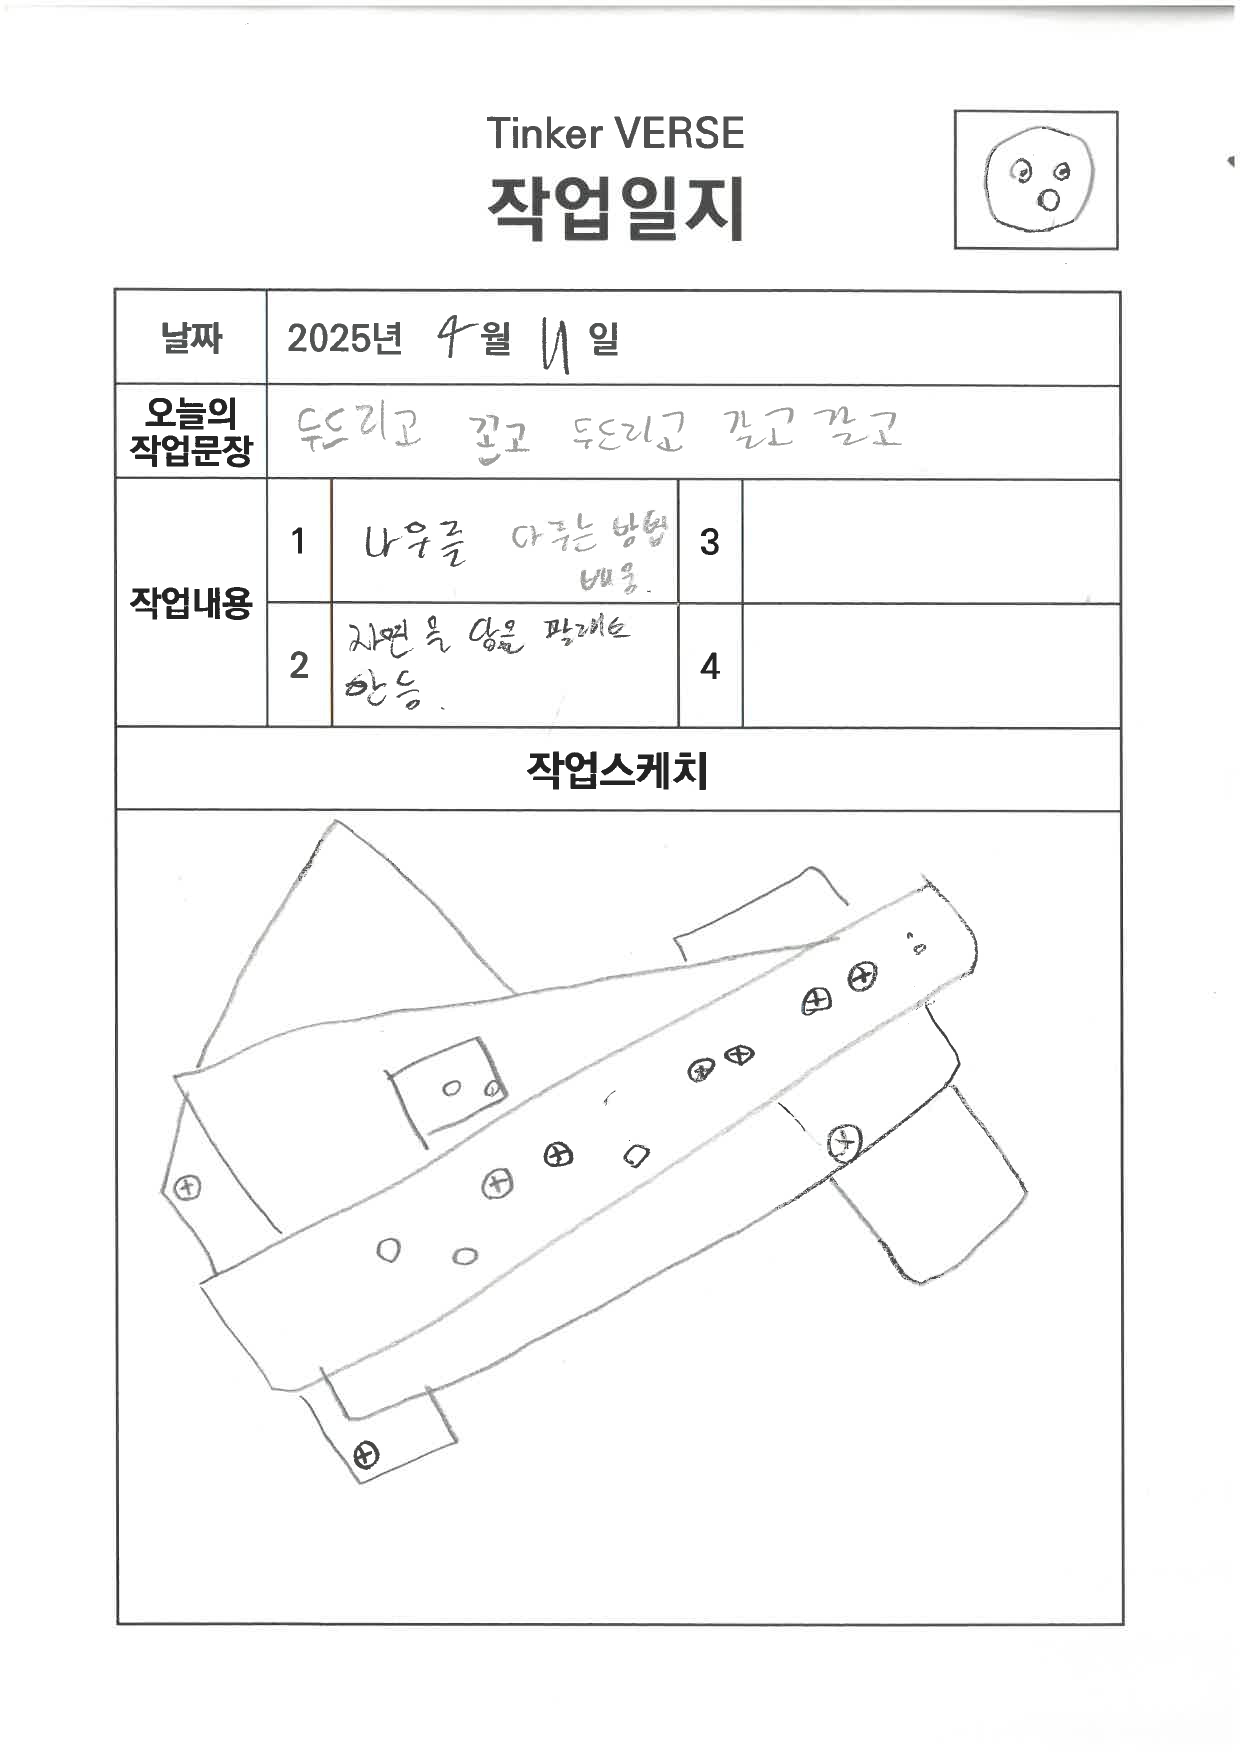 Tinker VERSE
작업일지
날짜 2025년 4월 11일
오늘의 작업문장 두드리고 꼽고 두드리고 갈고 깔고
작업내용
1 나우를 다루는 방법
배웅.
3
2 자연을 담을 팔레트
만등.
4
작업스케치